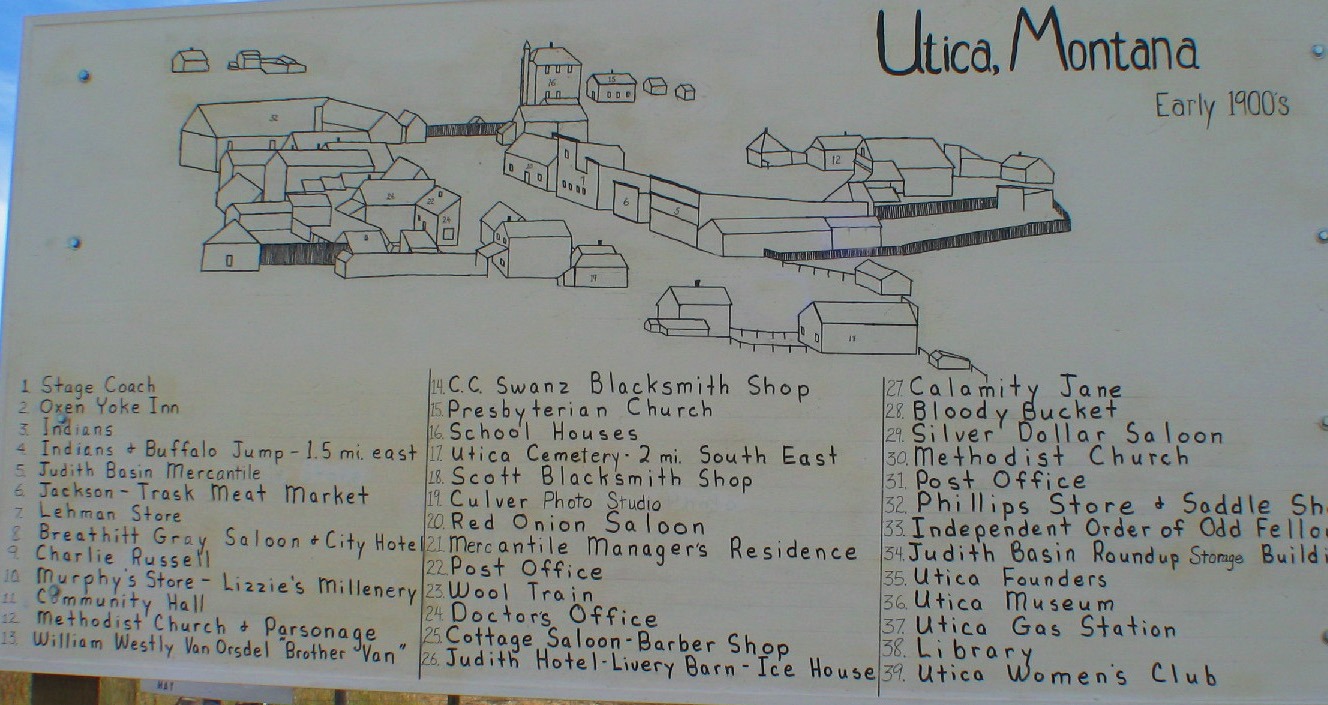 Utica, Montana
Early 1900's
32
16
15
12
7
6
5
24
19
1. Stage Coach
2. Oxen Yoke Inn
3. Indians
4. Indians + Buffalo Jump - 1.5 mi. east
5. Judith Basin Mercantile
6. Jackson - Trask Meat Market
7. Lehman Store
8. Breathitt Gray Saloon + City Hotel
9. Charlie Russell
10. Murphy's Store - Lizzie's Millenery
11. Community Hall
12. Methodist Church + Parsonage
13. William Westly Van Orsdel "Brother Van"
14. C.C. Swanz Blacksmith Shop
15. Presbyterian Church
16. School Houses
17. Utica Cemetery - 2 mi. South East
18. Scott Blacksmith Shop
19. Culver Photo Studio
20. Red Onion Saloon
21. Mercantile Manager's Residence
22. Post Office
23. Wool Train
24. Doctor's Office
25. Cottage Saloon - Barber Shop
26. Judith Hotel - Livery Barn - Ice House
27. Calamity Jane
28. Bloody Bucket
29. Silver Dollar Saloon
30. Methodist Church
31. Post Office
32. Phillips Store + Saddle Sh
33. Independent Order of Odd Fello
34. Judith Basin Roundup Storage Buildi
35. Utica Founders
36. Utica Museum
37. Utica Gas Station
38. Library
39. Utica Women's Club